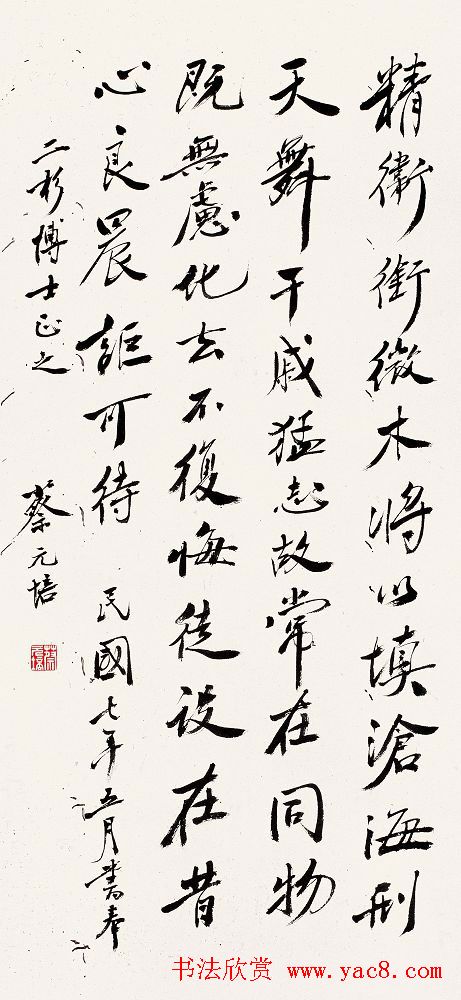 精衛銜微木將以填滄海刑
天舞干戚猛志故常在同物
既無慮化去不復悔徒設在昔
心良晨詎可待 民國七年五月書奉
二杉博士正之 蔡元培
书法欣赏 www.yac8.com